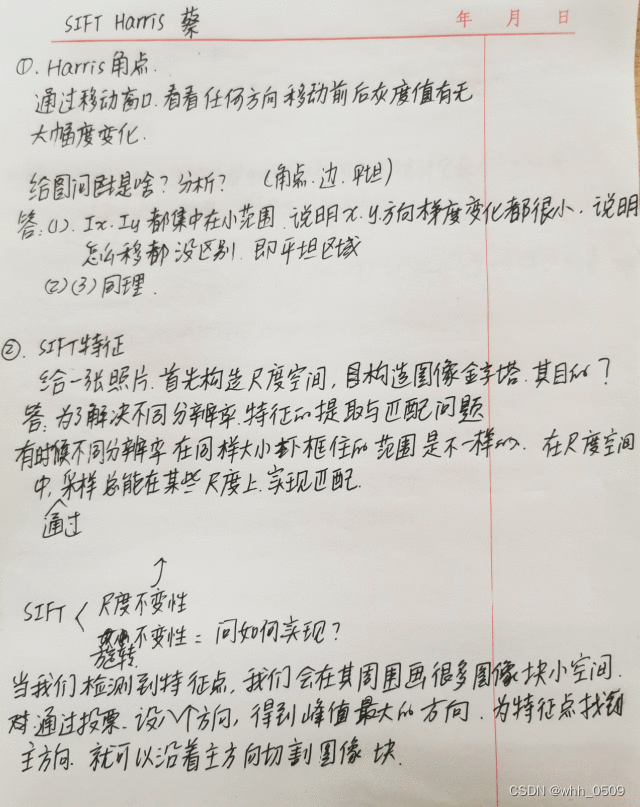 SIFT Harris 蔡
年 月 日
①. Harris角点.
通过移动窗口.看看任何方向移动前后灰度值有无
大幅度变化.
给图问时是啥？分析？ (角点.边.平坦)
答:(1). Ix. Iy 都集中在小范围.说明x.y.方向梯度变化都很小.说明
怎么移都没区别.即平坦区域
(2)(3)同理.
②. SIFT特征
给一张照片.首先构造尺度空间,目构造图像金字塔.其目的？
答:为了解决不同分辨率.特征的提取与匹配问题
有时候不同分辨率在同样大小框住的范围是不一样的. 在尺度空间
中,采样总能在某些尺度上.实现匹配.
通过
SIFT < 尺度不变性
不变性 = 问如何实现？
旋转
当我们检测到特征点,我们会在其周围画很多图像块小空间.
对通过投票.设八个方向,得到峰值最大的方向.为特征点找到
主方向.就可以沿着主方向切割图像块.
CSDN @whh_0509